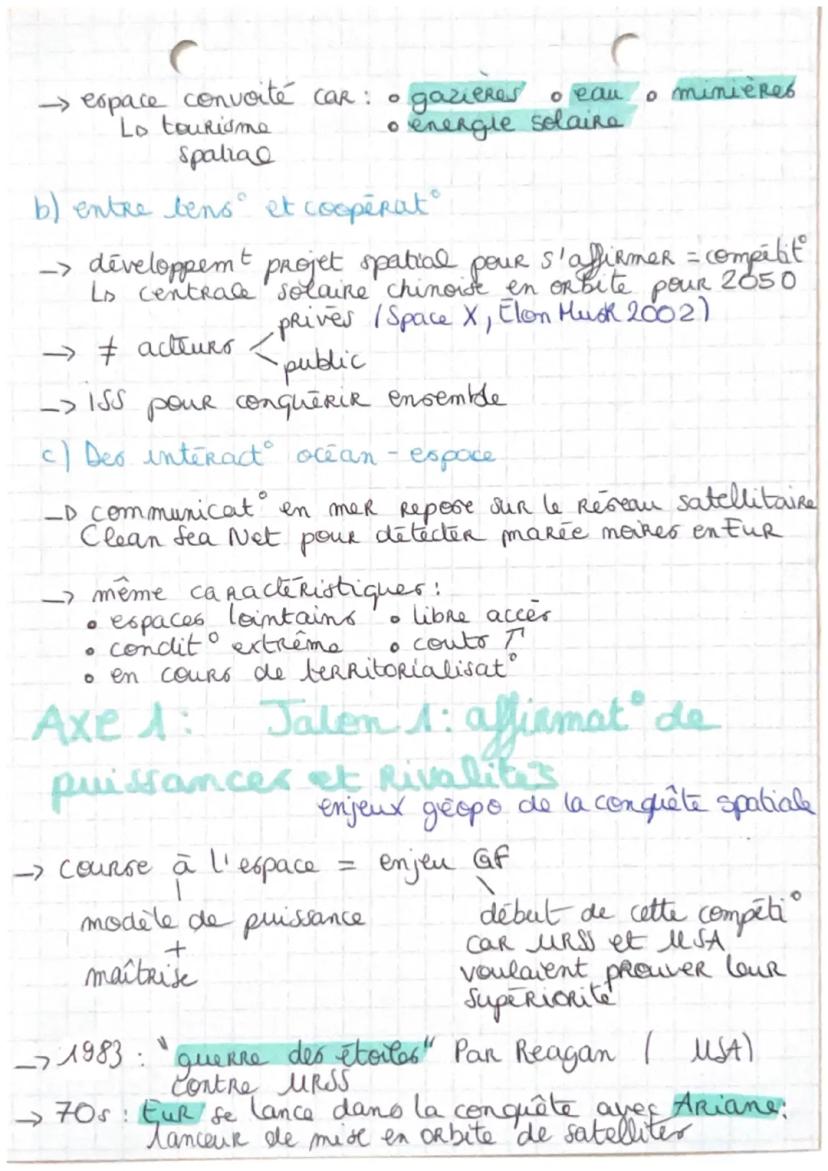 → espace convoité car : • gazières • eau • minières
↳ tourisme • énergie solaire
spatial
b) entre tens° et coopérat°
→ développemt projet spatial pour s'affirmer = compétit°
↳ centrale solaire chinoise en orbite pour 2050
privés (Space X, Elon Musk 2002)
→ ≠ acteurs <
public
→ ISS pour conquérir ensemble
c) Des intéract° océan - espace
→ communicat° en mer repose sur le réseau satellitaire
Clean Sea Net pour détecter marée noires en Eur
→ même caractéristiques :
• espaces lointains • libre accès
• condit° extrême • couts ↑
• en cours de territorialisat°
Axe 1 : Jalon 1 : affirmat° de
puissances et rivalités
enjeux géopo de la conquête spatiale
→ course à l'espace = enjeu GF
modèle de puissance début de cette compéti°
+ car URSS et USA
maîtrise voulaient prouver leur
supériorité
→ 1983 : "guerre des étoiles" Par Reagan ( USA)
contre URSS
→ 70s : Eur se lance dans la conquête avec Ariane :
lanceur de mise en orbite de satellites